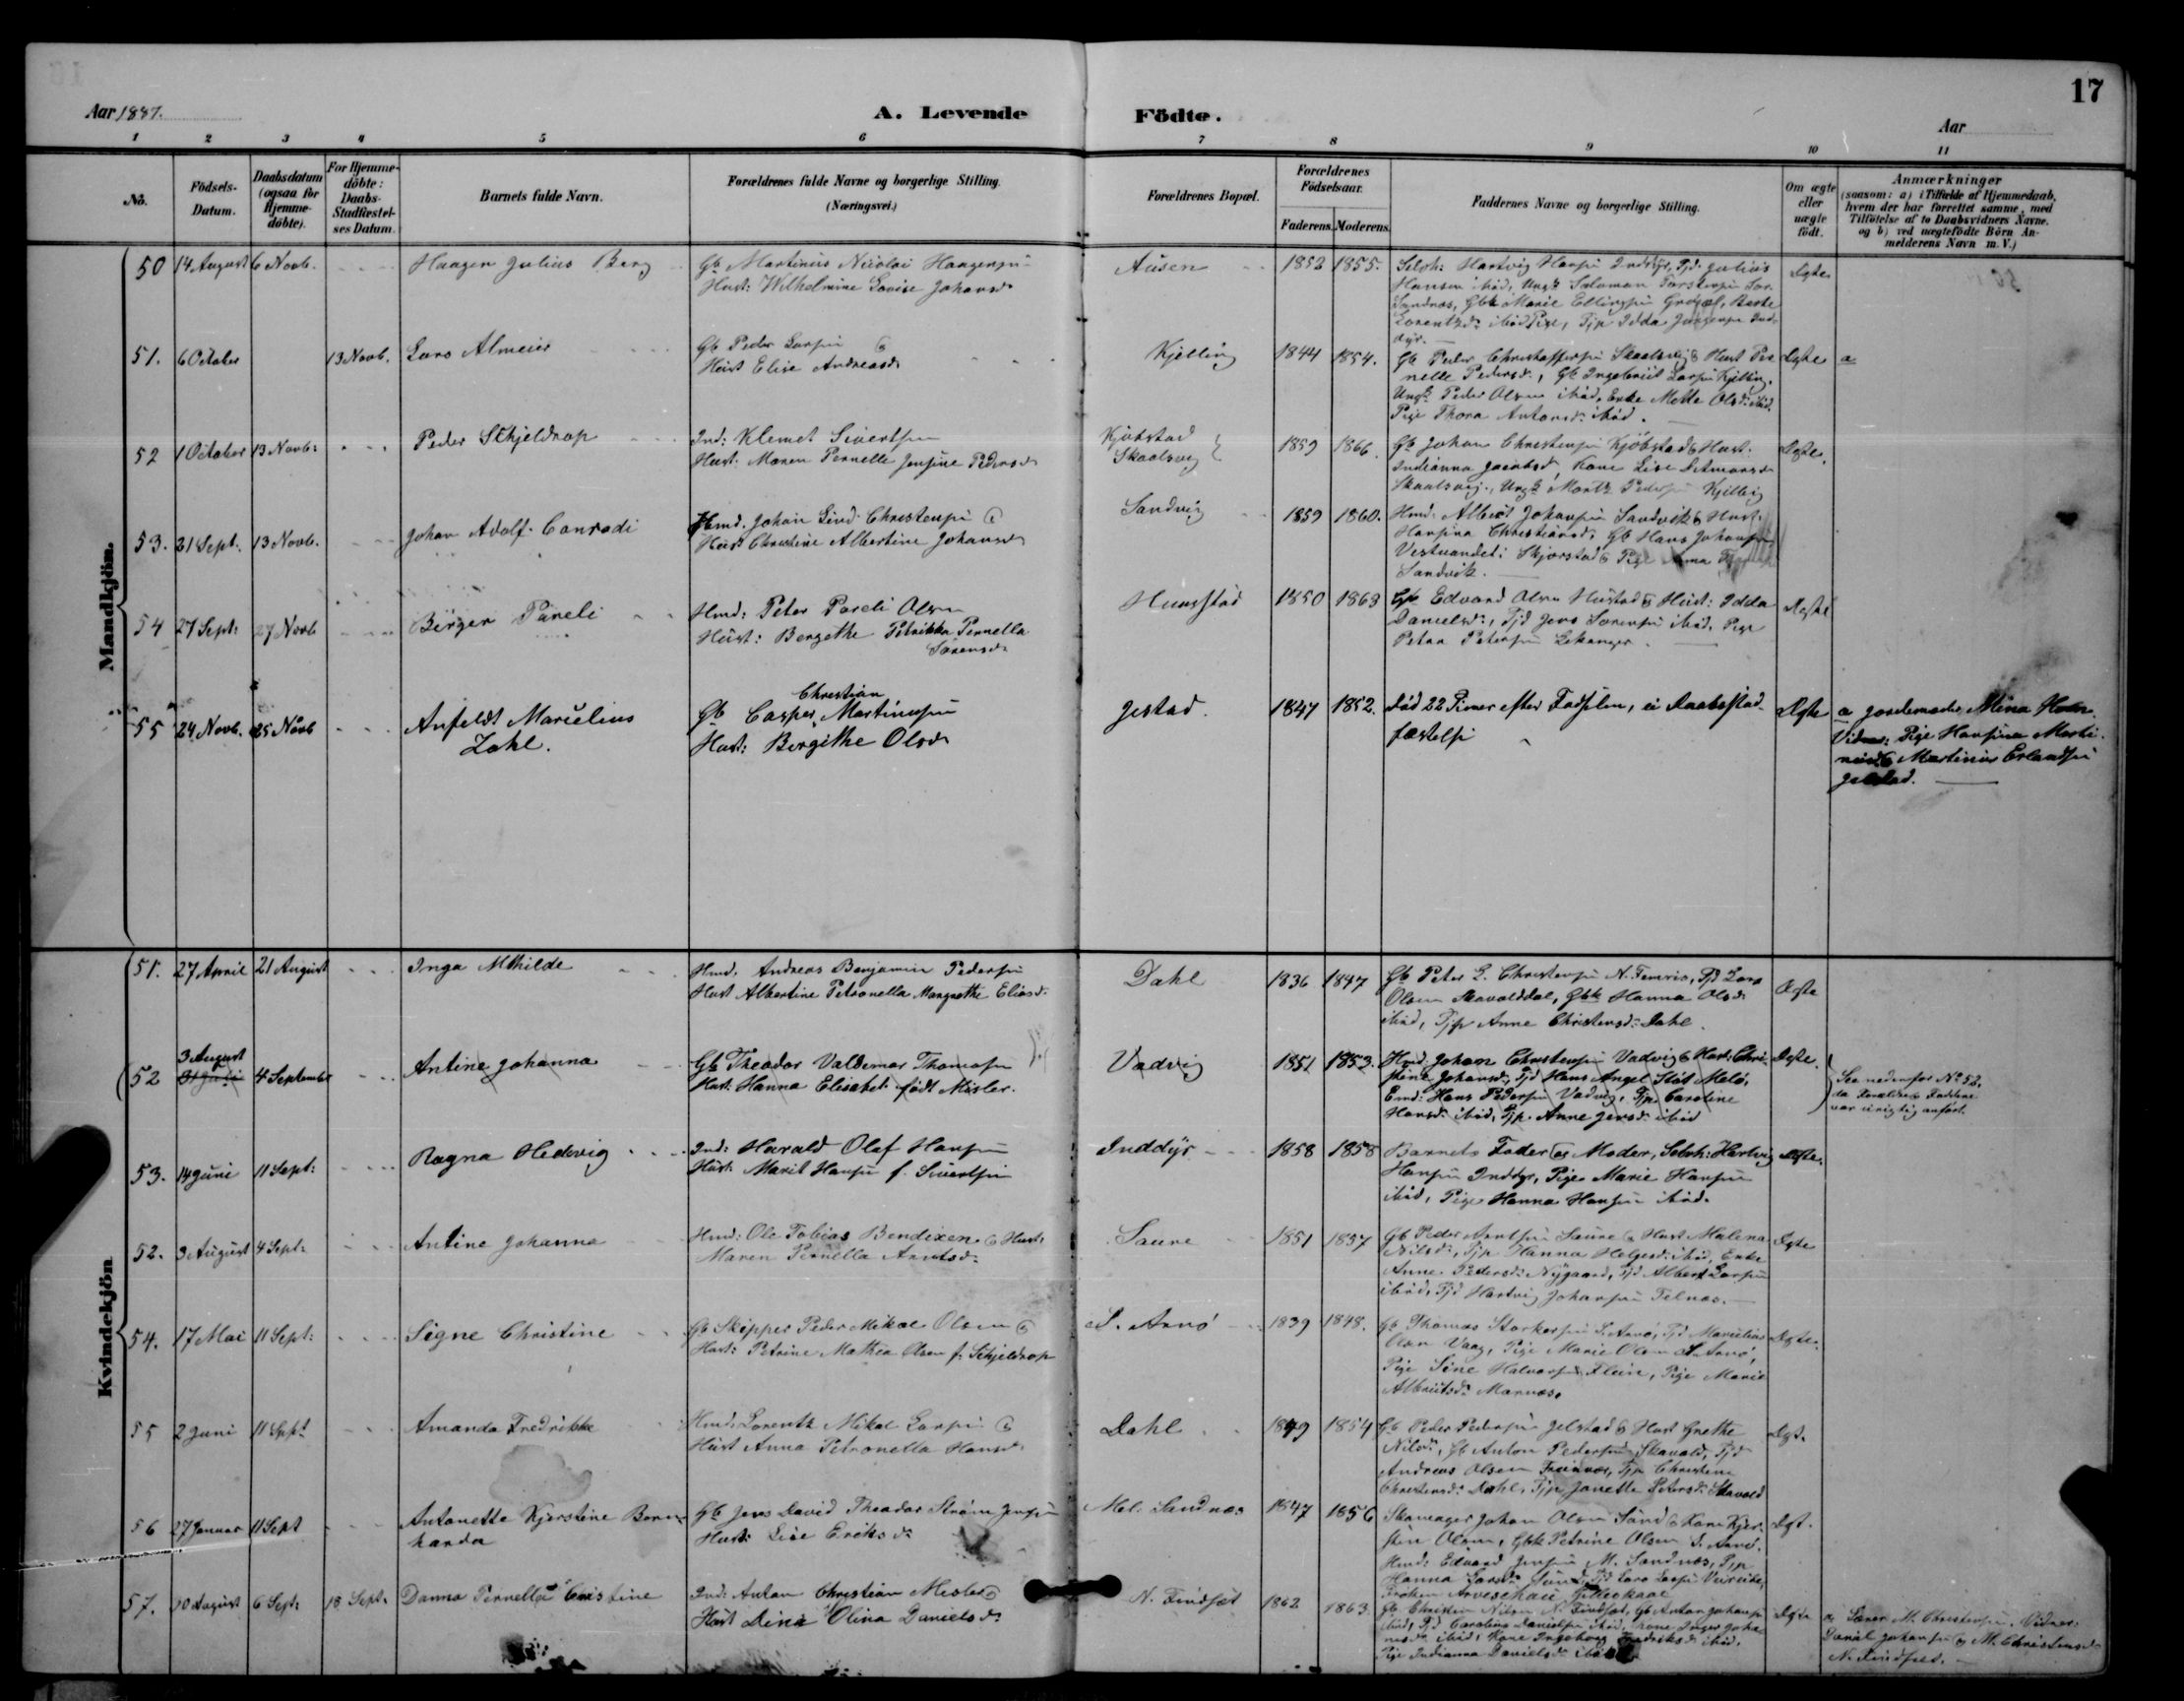 17
Aar 1887.
A. Levende Födte.
Aar
1 2 3 4 5 6 7 8 9 10 11
No.
Födsels-
Datum.
Daabsdatum
(ogsaa for
Hjemme-
döbte).
For Hjemme-
döbte:
Daabs-
Stadfæstel-
ses Datum.
Barnets fulde Navn.
Forældrenes fulde Navne og borgerlige Stilling.
(Næringsvei.)
Forældrenes Bopæl.
Forældrenes
Födselsaar.
Faderens. Moderens.
Faddernes Navne og borgerlige Stilling.
Om ægte
eller
uægte
födt.
Anmærkninger
(saasom: a) i Tilfælde af Hjemmedaab,
hvem der har forrettet samme, med
Tilföielse af to Daabsvidners Navne.
og b) ved uægtefödte Börn An-
melderens Navn m. V.)
Mandkjön.
50 14 August 6 Novb. Haagen Julius Berg
Gb Martinus Nicolai Haagensen
Hust: Wilhelmine Lovise Johansd.
Ausen 1852 1855.
Selvh: Hartvig Hansen Inddyr, Tjd. Julius
Hansen ibid, Ungk Salomon
Sandnæs, Gbk Marie Ellingsen
Lorentzd. ibid Pige, Tjp Idda
dyr.
Ægte
51. 6 October 13 Novb. Lars Almeier
Gb Peder Larsen &
Hust Elise Andreasd.
Kjelling 1844 1854.
Gb Peder Christoffersen Skaalsvig & Hust Per
nelle Pedersd., Gb Ingebrigt Larsen Kjelling.
Ungk Peder Olsen ibid, Enke Mette Olsd. ibid.
Pige Thora Antonsd. ibid.
Ægte a
52 1 October 13 Novb: Peder Schjeldrop
Ind: Klemet Sivertsen
Hust: Maren Pernelle Jensine Pedersd.
Kjøbstad
Skaalsvig
1859 1866.
Gb Johan Christensen Kjöbstad & Hust.
Indianna Jacobsd, Kone Lise Ditmansd
Skaalsvig., Ungk Mortz Pedersen Kjelling
Ægte.
53. 21 Sept: 13 Novb. Johan Adolf Conradi
Hmd. Johan Lind Christensen &
Hust Christine Albertine Johansd.
Sandvig 1859 1860.
Hmd: Albert Johansen Sandvik & Hust.
Hansina Christiansd., Gb Hans Johansen
Vestvandet: Skjørstad & Pige Anna
Sandvik.
54 27 Sept: 27 Novb Birger Pareli
Hmd: Peter Pareli Olsen
Hust: Bergethe Petrikka Pernella
Sørensd.
Hunsstad 1850 1863
Gb Edvard Olsen Hustad & Hust: Idda
Danielsd., Tjd Jens Sørensen ibid, Pige
Petra Petersen Lekanger.
Ægte
55 24 Novb. 25 Novb Anfeldt Marielius
Zahl.
Christian
Gb Casper Martinussen
Hust: Bergithe Olsd.
Jestad. 1847 1852.
Död 22 Timer efter Födselen, ei Daabsstad-
fæstelse
Ægte a Jordemoder Mina Holm.
Vidner: Pige Hansine Marti-
nusd. & Martinus Erlandsen
Jelstad.
Kvindekjön
51. 27 April 21 August Inga Mthilde
Hmd. Andreas Benjamin Pedersen
Hust Albertine Petronella Margrethe Eliasd.
Dahl 1836 1847
Gb Peter L. Christensen N. Femris, Tjd Lars
Olsen Skavolddal, Gbk Hanna Olsd.
ibid, Tjp Anne Christensd. Dahl.
Ægte
52 3 August
31 Juli 4 September Antine Johanna
Gb Theodor Valdemar Thomesen
Hust: Hanna Elisabet födt Misler.
Vadvig 1851 1853.
Hmd: Johan Christensen Vadvig & Hust: Chri-
stine Johansd., Tjd Hans Angel Støt Melö.
Emd: Hans Pedersen Vadvig, Tjp Caroline
Hansd. ibid, Tjp. Anne Jensd. ibid
Ægte.
See nedenfor No 52,
da Forældre & Faddere
var urigtig anfört.
53. 14 Juni 11 Sept: Ragna Hedevig
Ind: Harald Olaf Hansen
Hust. Marit Hansen f. Sivertsen
Inddyr 1858 1858
Barnets Fader og Moder, Selvh: Hartvig
Hansen Inddyr, Pige Marie Hansen
ibid, Pige Hanna Hansen ibid.
Ægte.
52. 3 August 4 Sept: Antine Johanna
Hmd: Ole Tobias Bendixen & Hust:
Maren Pernella Arntsd.
Saure 1851 1857
Gb Peder Arntsen Saure & Hust Malena
Nilsd., Tjp Hanna Helgesd. ibid, Enke
Anne Pedersd. Nygaard, Tjd Albert Larsen
ibid, Tjd Hartvig Johansen Telnæs.
Ægte
54. 17 Mai 11 Sept: Signe Christine
Gb Skipper Peder Mikal Olsen &
Hust: Petrine Mathea Olsen f. Schjeldrop
S. Arnö 1839 1848.
Gb Thomas Storkersen S. Arnö, Tjd Marielius
Olsen Vaag, Pige Marie Olsen S. Arnö,
Pige Sine Halvorsen Flein, Pige Marie
Albrietsd. Marnæs.
Ægte.
55 2 Juni 11 Sept Amanda Fredrikke
Hmd. Lorentz Mikal Larsen &
Hust Anna Petronella Hansd.
Dahl 1849 1854
Gb Peder Pedersen Jelstad & Hust Grethe
Nilsd., Gb Anton Pedersen Skavold, Tjd
Andreas Olsen, Tjp Christine
Christensd. Dahl, Tjp Janette Petersd. Skavold
Ægt.
56 27 Januar 11 Sept Antonette Kjerstine Bern-
harda
Gb Jens David Theodor Strøm Jensen
Hust: Lise Eriksd.
Mel. Sandnæs 1847 1856
Skomager Johan Olsen Sand & Kone Kjer-
stine Olsen, Gbk Petrine Olsen S. Arnö.
Hmd: Edvard Jensen M. Sandnæs, Tjp
Hanna Larsd., Tjd Lars Larsen
Frøken Gilleskaal
Ægt.
57. 10 August 6 Sept: 18 Sept. Danna Pernella Cristine
Ind: Anton Christian Misler &
Hust Dina Olina Danielsd.
N. Findset 1862 1863.
Gb Christen Nilsen N. Findset, Gb Anton Johansen
ibid, Tjd Carolius Danielsen ibid, Kone Inger Joha-
nesd. ibid, Kone Ingeborg Fredriksd. ibid,
Pige Indianna Danielsd. ibid
Ægte a Lærer M. Christensen. Vidner.
Daniel Johansen & M. Christensd.
N. Findset.